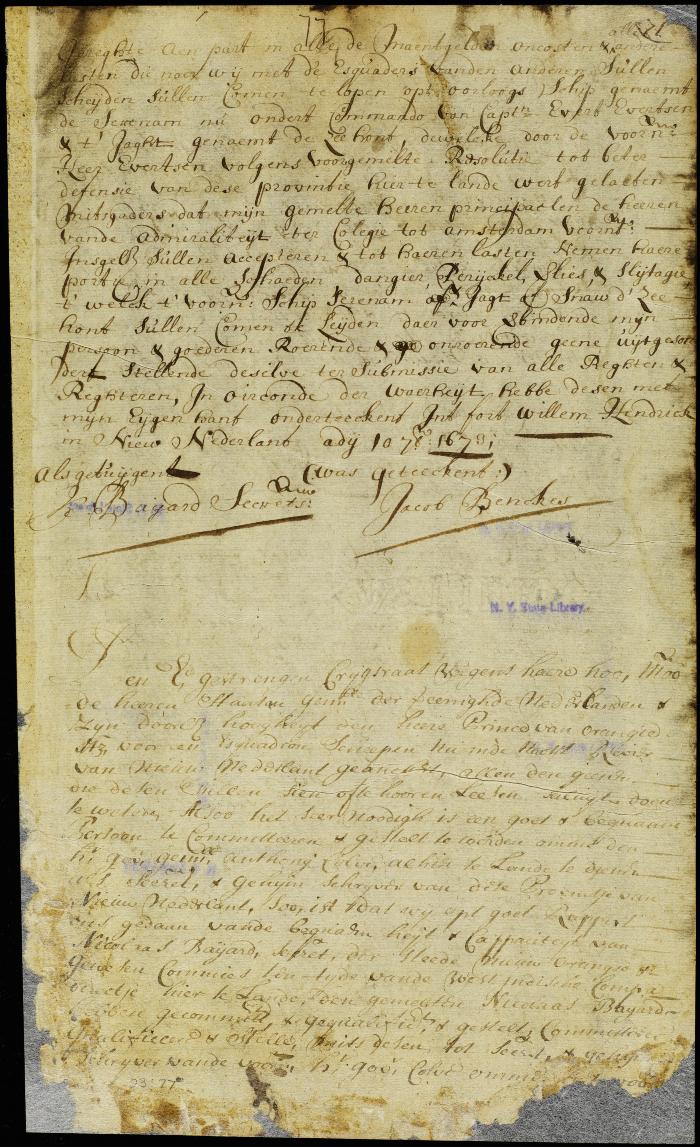 77
alle 71
Geregte Aen part in alle de Maentgelden oncosten & andere
lasten die naer wij met de Esquaders vanden anderen Sullen
Scheyden Sullen Comen te lopen opt oorloogs Schip genaemt
de Serenam nu ondert Commando van Captn Evert Evertsen
& t' Jaght genaemt de Zeehont dewelcke door de voorn:
Heer Evertsen volgens voorgemelte Resolutie tot beter
defensie van dese provintie hier te lande wert gelaeten
Mitsgaders dat mijn gemelte heeren principaelen de heeren
vande admiraliteyt ter Colegie tot amsterdam voornt:
Insgelx Sullen accepteren & tot haeren lasten Nemen haere
portie in alle Schaeden dangier, Perijckel, Vlies, & Slijtagie
t' welck t' voorn: Schip Serenam of Jagt of Snauw d' Zee
hont Sullen Comen te Leijden daer voor Vbindende mijn
persoon & goederen Roerende & onroerende geene uijtgeson
dert Stellende deselve ter Submissie van alle Reghten &
Reghteren, In oirconde der waerheyt hebbe desen met
mijn Eijgen hant onderteeckent Int fort Willem Hendrick
in Nieu Nederlant ady 10 7br: 1673;
Als getuijgent (was geteeckent:)
N: Bayard Secrets: Jacob Benckes
N. Y. State Library
en Ed gestrengen Crijgsraat Wegens haere hoo: Moo
de heeren Staaten Genll der Vereenighde Nederlanden &
Zyn Doorl hoogheyt den heere Prince van orangie
voor een Esquadron Scheepen nu inde Revier
van Nieuw Nederlant geanckert, allen den geenen
die desen Sullen Sien ofte hooren Leesen
te weten, Alsoo het seer Noodigh is een goet & bequaem
Persoon te Committeeren & gestelt te worden omme den
hr govr genll Anthony Colve, alhier te Lande te dienen
als Secrets, & geheijm Schryver van dese Provintje van
Nieuw Nederlant, Soo ist dat wy opt goet Rapport
ons gedaen vande bequaemheyt & Cappaciteyt van
Nicolaes Bayard, Secrets, der Steede Nieuw Orangie &
geweesen Commies ten tyde vande Westindische Compa
hier te Lande, den gemelten Nicolaes Bayard
hebben gecommitt & gequalificeert & gestelt, Committeeren
qualificeeren & Stellen mits desen tot Secrets, & geheijm
Schryver vande voorn. hr govr Colve omme
23:77